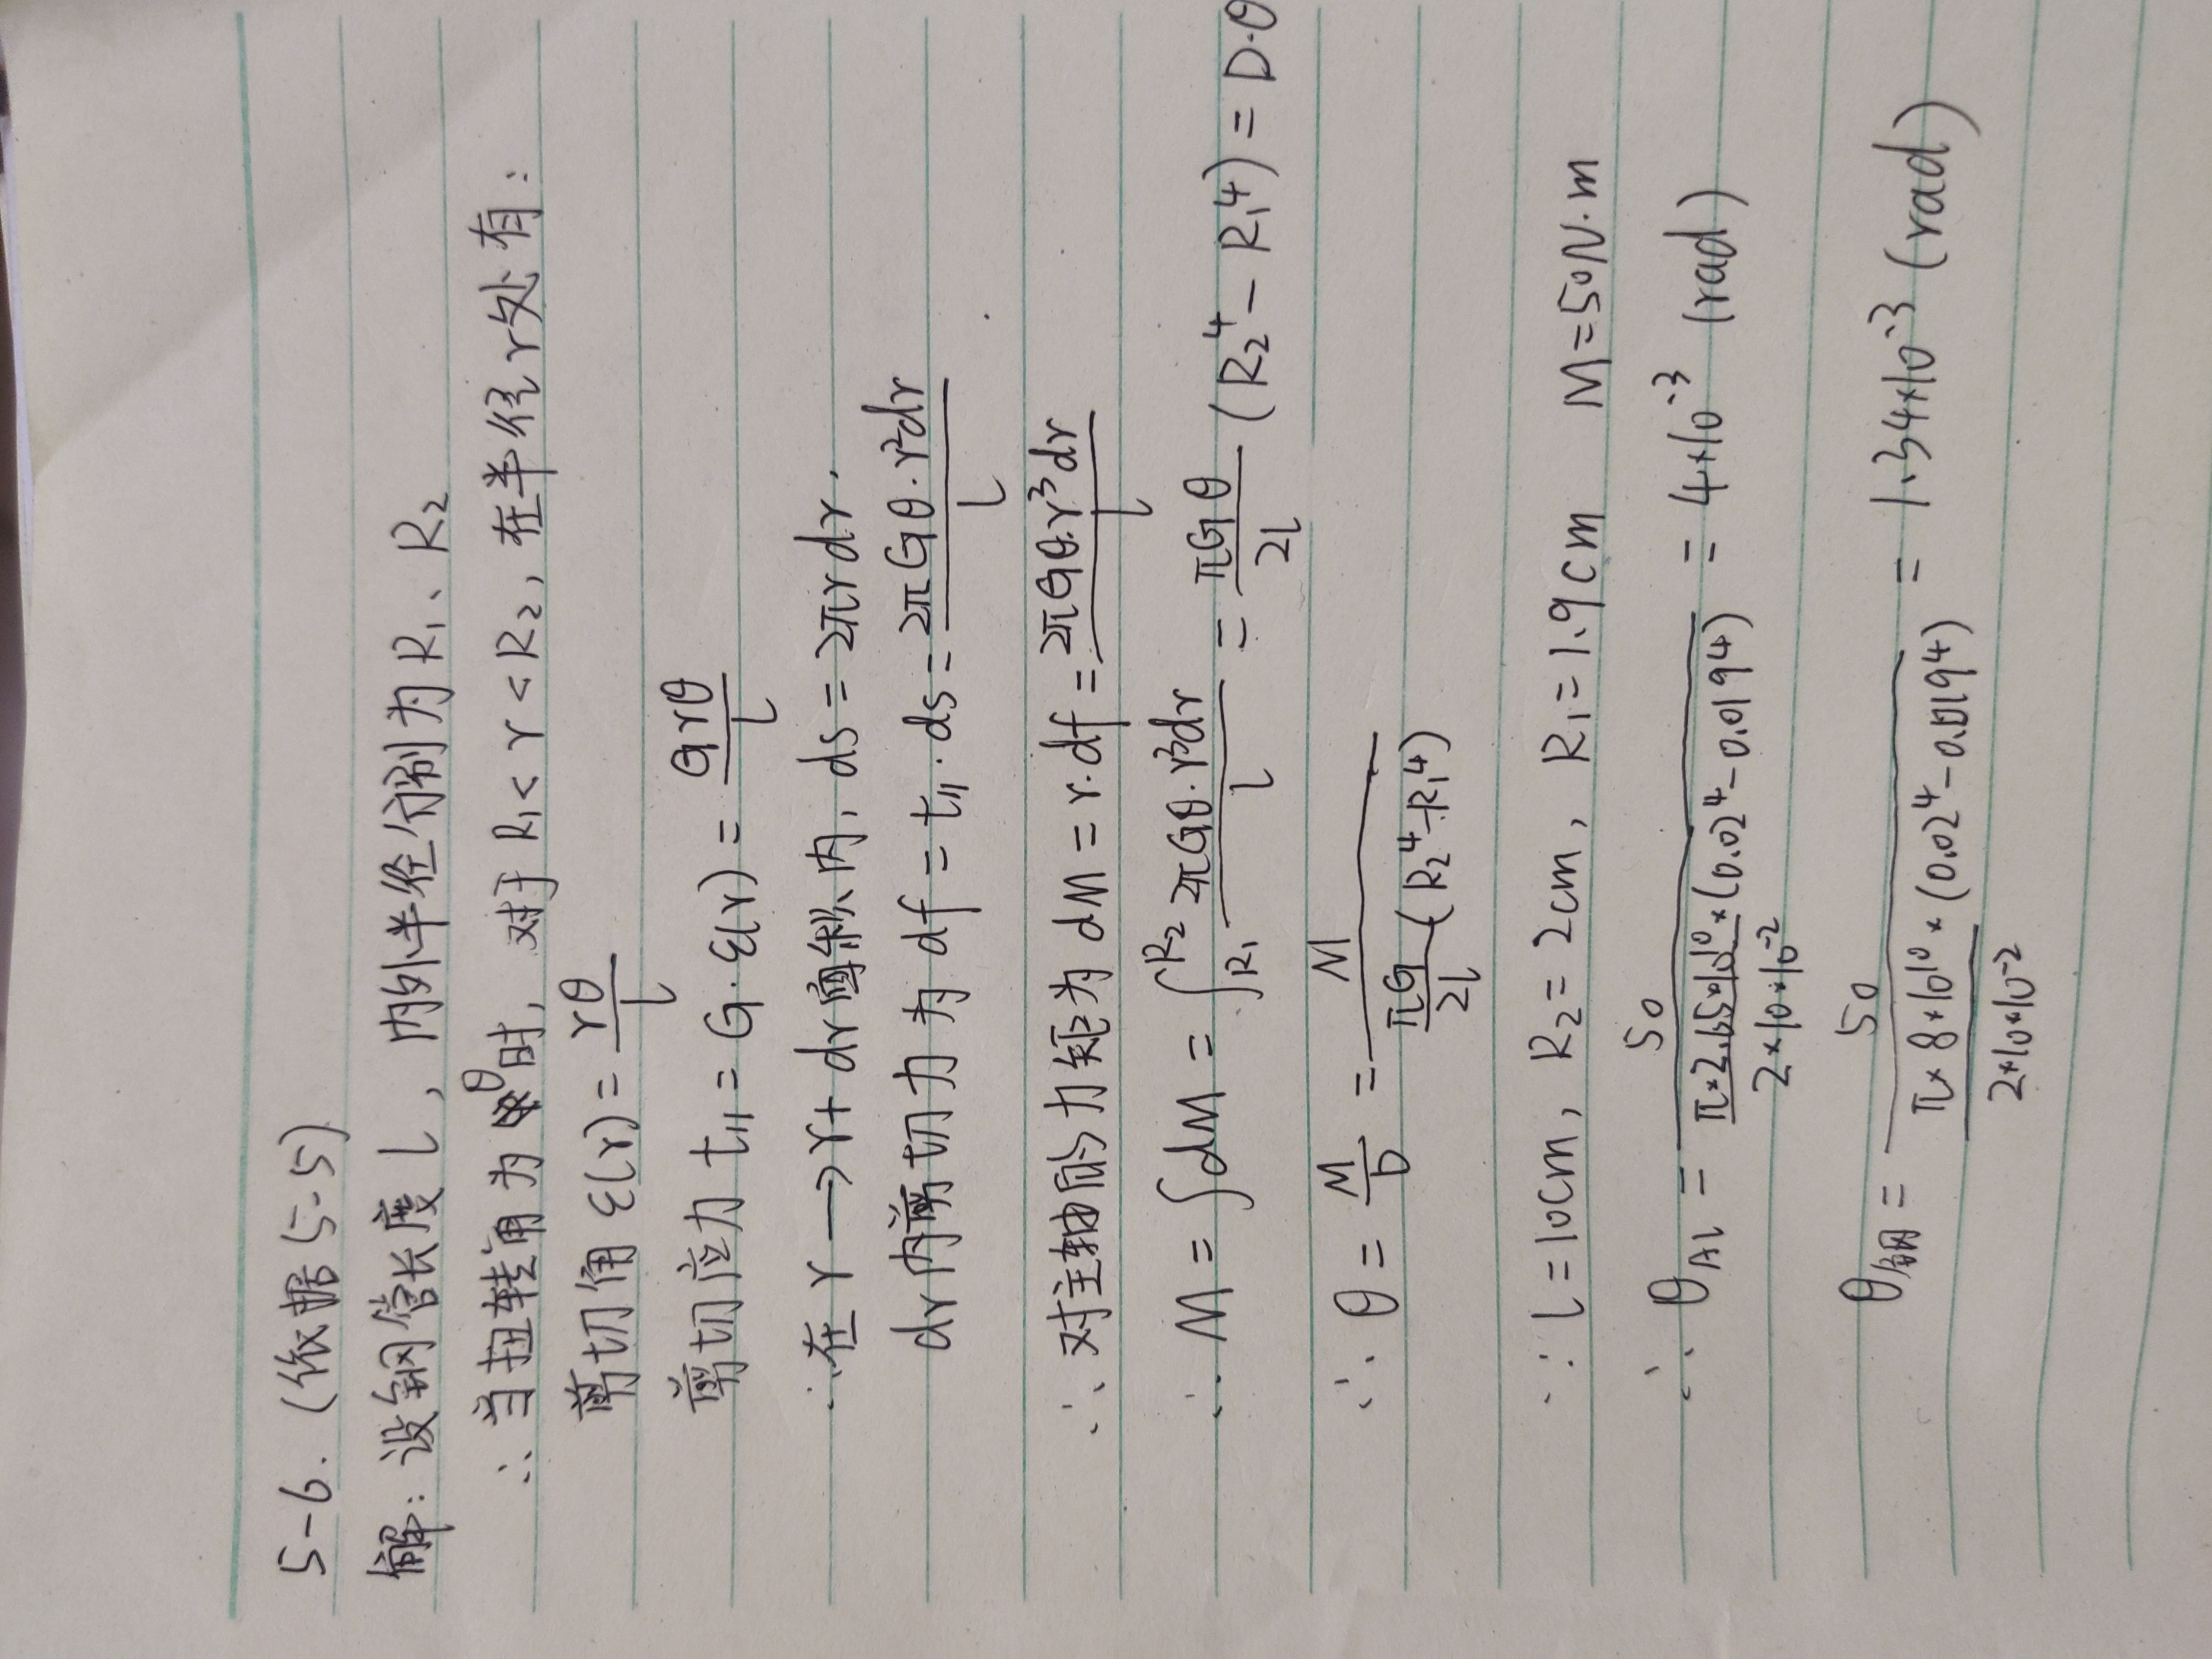 5-6. (依据5-5)
解: 设钢管长度 l, 内外半径分别为 R₁、R₂
∴ 当扭转角为 θ 时, 对于 R₁ < r < R₂, 在半径 r 处有:
剪切角 ε(r) = rθ/l
剪切应力 t∥ = G·ε(r) = Grθ/l
∴在 r → r+dr 圆环内, ds = 2πrdr.
dr内剪切力为 df = t∥·ds = 2πGθ·r²dr/l
∴ 对主轴的力矩为 dM = r·df = 2πGθ·r³dr/l
∴ M = ∫dM = ∫_{R₁}^{R₂} 2πGθ·r³dr/l = πGθ/2l (R₂⁴ - R₁⁴) = D·θ
∴ θ = M/D = M/(πG/2l (R₂⁴ - R₁⁴))
∵ l = 10cm, R₂ = 2cm, R₁ = 1.9cm M = 50N·m
∴ θAl = 50/(π×2.65×10¹⁰×(0.02⁴ - 0.019⁴)/2×10×10⁻²) = 4×10⁻³ (rad)
θ钢 = 50/(π×8×10¹⁰×(0.02⁴ - 0.019⁴)/2×10×10⁻²) = 1.34×10⁻³ (rad)